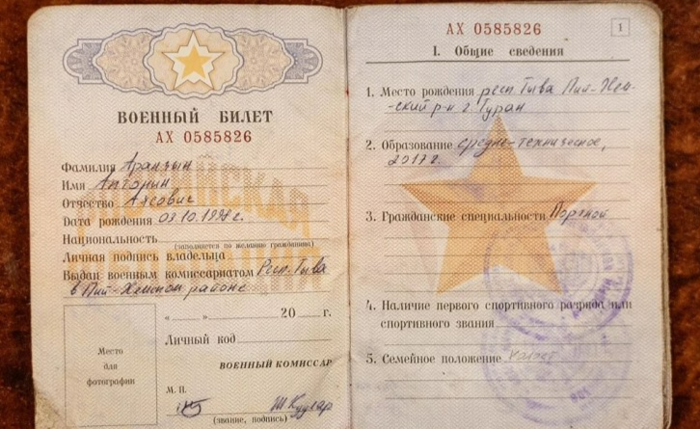 ВОЕННЫЙ БИЛЕТ
АХ 0585826
Фамилия Аранзын
Имя
Отчество
Дата рождения 03.10.199 г.
Национальность
(заполняется по желанию гражданина)
Личная подпись владельца
Выдан военным комиссариатом Респ. Тыва
в Пий-Хемском районе
„ “ 20 г.
Личный код
ВОЕННЫЙ КОМИССАР
Место
для
фотографии
М. П.
(звание, подпись)
АХ 0585826
1
I. Общие сведения
1. Место рождения респ. Тыва Пий-Хем-
-ский р-н г. Туран
2. Образование средне-техническое,
2017 г.
3. Гражданские специальности Портной
4. Наличие первого спортивного разряда или
спортивного звания
5. Семейное положение холост